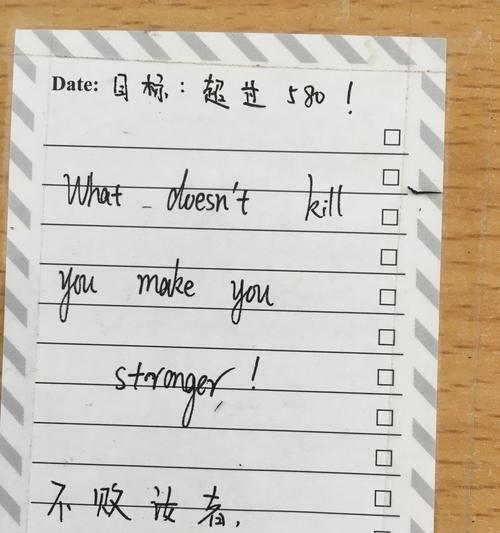 Date: 目标：超过 580！
What doesn't kill
you make you
stronger!
不败汝者,